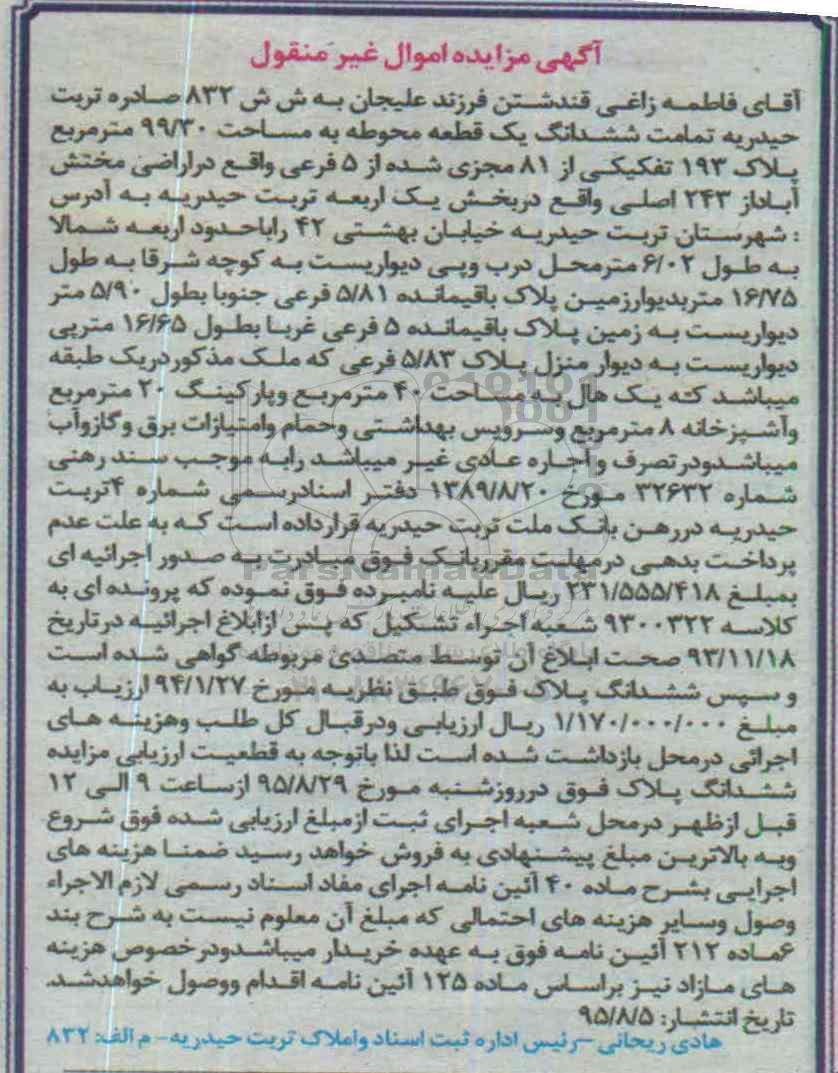 آگهی مزایده اموال غیر منقول
آقای فاطمه زاغی قندشتن فرزند علیجان به ش ش ۸۳۲ صادره تربت
حیدریه تمامت ششدانگ یک قطعه محوطه به مساحت ۹۹/۳۰ مترمربع
پلاک ۱۹۳ تفکیکی از ۸۱ مجزی شده از ۵ فرعی واقع دراراضی مختش
آباداز ۲۴۳ اصلی واقع دربخش یک اربعه تربت حیدریه به آدرس
: شهرستان تربت حیدریه خیابان بهشتی ۴۲ راباحدود اربعه شمالا
به طول ۶/۰۲ مترمحل درب وپی دیواریست به کوچه شرقا به طول
۱۶/۷۵ متربدیوارزمین پلاک باقیمانده ۵/۸۱ فرعی جنوبا بطول ۵/۹۰ متر
دیواریست به زمین پلاک باقیمانده ۵ فرعی غربا بطول ۱۶/۶۵ مترپی
دیواریست به دیوار منزل پلاک ۵/۸۳ فرعی که ملک مذکوردریک طبقه
میباشد که یک هال به مساحت ۴۰ مترمربع وپارکینگ ۲۰ مترمربع
وآشپزخانه ۸ مترمربع وسرویس بهداشتی وحمام وامتیازات برق وگازوآب
میباشدودرتصرف واجاره عادی غیر میباشد رابه موجب سند رهنی
شماره ۳۲۶۳۲ مورخ ۱۳۸۹/۸/۲۰ دفتر اسنادرسمی شماره ۴تربت
حیدریه دررهن بانک ملت تربت حیدریه قرارداده است که به علت عدم
پرداخت بدهی درمهلت مقرربانک فوق مبادرت به صدور اجرائیه ای
بمبلغ ۲۳۱/۵۵۵/۴۱۸ ریال علیه نامبرده فوق نموده که پرونده ای به
کلاسه ۹۳۰۰۳۲۲ شعبه اجراء تشکیل که پس ازابلاغ اجرائیه درتاریخ
۹۳/۱۱/۱۸ صحت ابلاغ آن توسط متصدی مربوطه گواهی شده است
و سپس ششدانگ پلاک فوق طبق نظریه مورخ ۹۴/۱/۲۷ ارزیاب به
مبلغ ۱/۱۷۰/۰۰۰/۰۰۰ ریال ارزیابی ودرقبال کل طلب وهزینه های
اجرائی درمحل بازداشت شده است لذا باتوجه به قطعیت ارزیابی مزایده
ششدانگ پلاک فوق درروزشنبه مورخ ۹۵/۸/۲۹ ازساعت ۹ الی ۱۲
قبل ازظهر درمحل شعبه اجرای ثبت ازمبلغ ارزیابی شده فوق شروع
وبه بالاترین مبلغ پیشنهادی به فروش خواهد رسید ضمنا هزینه های
اجرایی بشرح ماده ۴۰ آئین نامه اجرای مفاد اسناد رسمی لازم الاجراء
وصول وسایر هزینه های احتمالی که مبلغ آن معلوم نیست به شرح بند
۶ماده ۲۱۲ آئین نامه فوق به عهده خریدار میباشدودرخصوص هزینه
های مازاد نیز براساس ماده ۱۲۵ آئین نامه اقدام ووصول خواهدشد.
تاریخ انتشار: ۹۵/۸/۵
هادی ریحانی -رئیس اداره ثبت اسناد واملاک تربت حیدریه- م الف: ۸۳۲
ParsNamadData